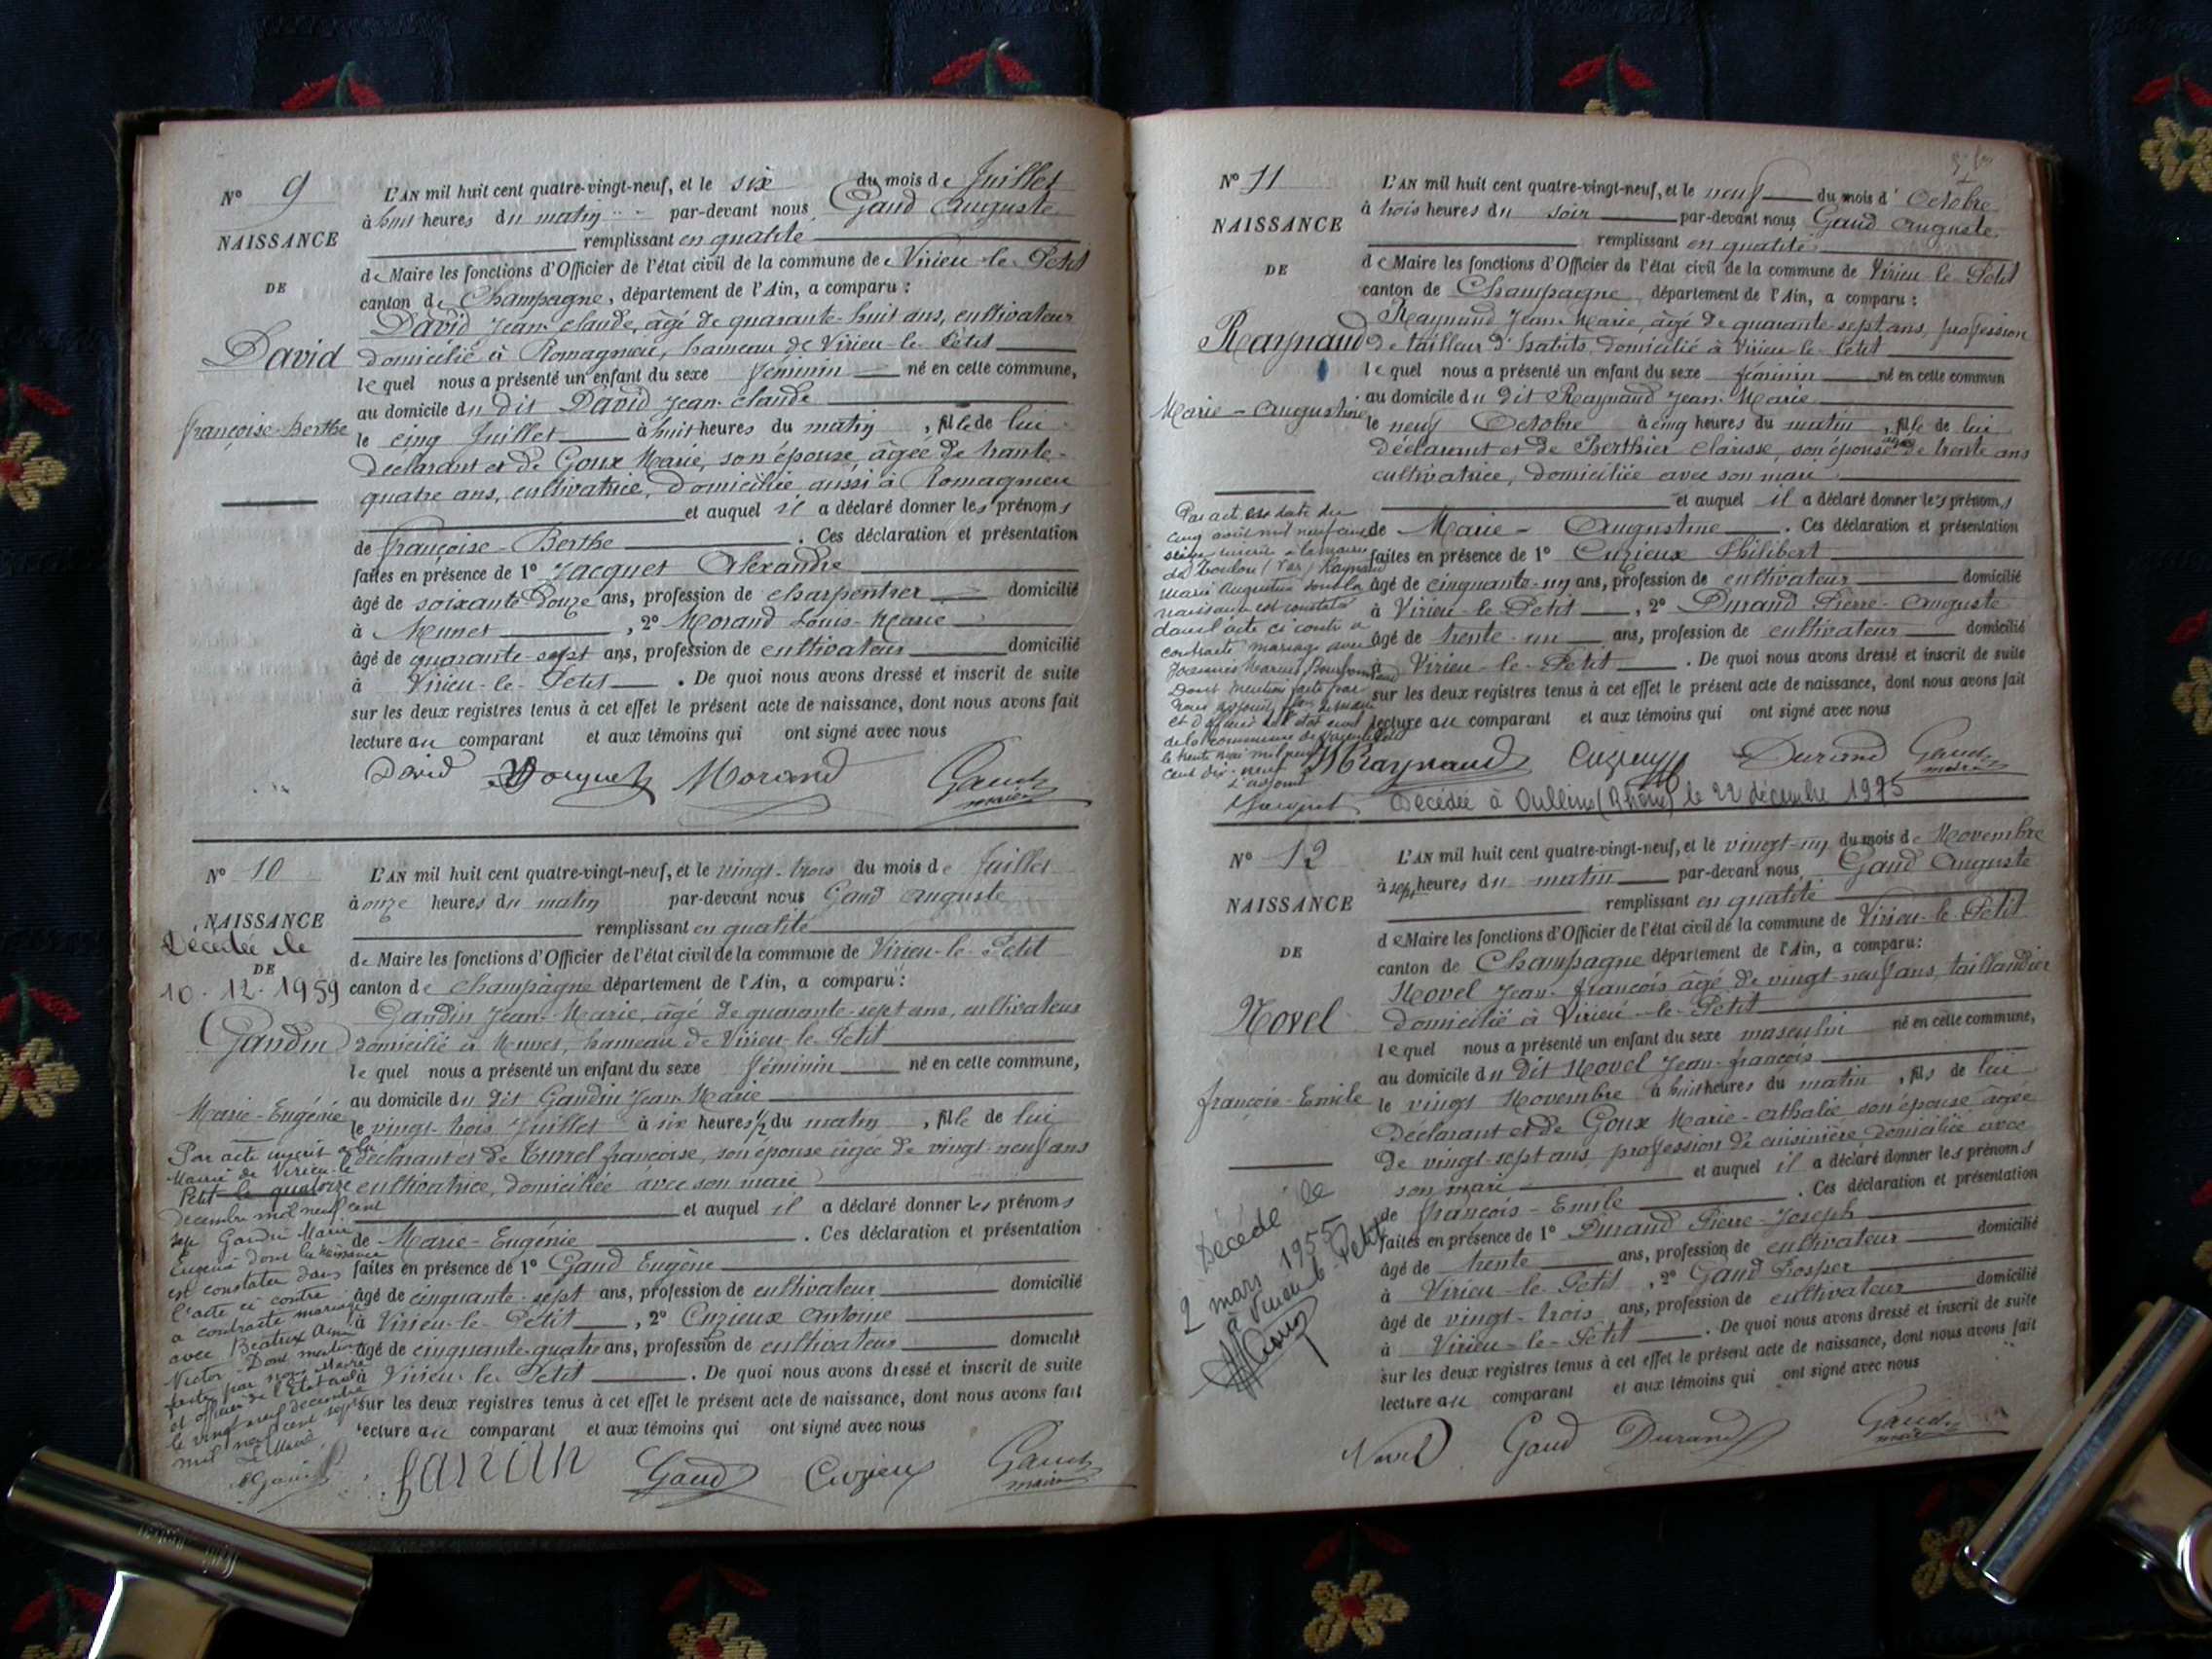 N° 9
NAISSANCE
DE
David
françoise-Berthe
L'AN mil huit cent quatre-vingt-neuf, et le six du mois de Juillet
à huit heures du matin par-devant nous Gaud Auguste
remplissant en qualité
de Maire les fonctions d'Officier de l'état civil de la commune de Virieu-le-Petit
canton de Champagne, département de l'Ain, a comparu :
David Jean-Claude, âgé de quarante-huit ans, cultivateur
domicilié à Romagnieu, hameau de Virieu-le-Petit
lequel nous a présenté un enfant du sexe féminin né en cette commune,
au domicile du dit David Jean-Claude
le cinq Juillet à huit heures du matin, fille de lui
déclarant et de Goux Marie, son épouse, âgée de trente-
quatre ans, cultivatrice, domiciliée aussi à Romagnieu
et auquel il a déclaré donner les prénoms
de françoise-Berthe . Ces déclaration et présentation
faites en présence de 1° Jacquet Alexandre
âgé de soixante-douze ans, profession de charpentier domicilié
à Munet , 2° Morand Louis-Marie
âgé de quarante-sept ans, profession de cultivateur domicilié
à Virieu-le-Petit . De quoi nous avons dressé et inscrit de suite
sur les deux registres tenus à cet effet le présent acte de naissance, dont nous avons fait
lecture au comparant et aux témoins qui ont signé avec nous
David Morand Gaud
maire
N° 10
NAISSANCE
Décédée le
DE
10.12.1959
Gandin
Marie-Eugénie
Par acte inscrit à la
Mairie de Virieu-le
Petit le quatorze
decembre mil neuf cent
sept Gandin Marie
Eugénie dont la naissance
est constatée dans
l'acte ci contre
a contracté mariage
avec Béatrix
Victor. Dont mention
faite par nous Maire
et officier de l'Etat civil
le vingt neuf decembre
mil neuf cent sept
Le Maire
L'AN mil huit cent quatre-vingt-neuf, et le vingt-trois du mois de Juillet
à onze heures du matin par-devant nous Gaud Auguste
remplissant en qualité
de Maire les fonctions d'Officier de l'état civil de la commune de Virieu-le-Petit
canton de Champagne département de l'Ain, a comparu :
Gandin Jean-Marie, âgé de quarante-sept ans, cultivateur
domicilié à Munet, hameau de Virieu-le-Petit
lequel nous a présenté un enfant du sexe féminin né en cette commune,
au domicile du dit Gandin Jean-Marie
le vingt-trois Juillet à six heures 1/2 du matin, fille de lui
déclarant et de françoise, son épouse âgée de vingt-neuf ans
cultivatrice, domiciliée avec son mari
et auquel il a déclaré donner les prénoms
de Marie-Eugénie . Ces déclaration et présentation
faites en présence de 1° Gaud Eugène
âgé de cinquante-sept ans, profession de cultivateur domicilié
à Virieu-le-Petit , 2° Cuzieux Antoine
âgé de cinquante-quatre ans, profession de cultivateur domicilié
à Virieu-le-Petit . De quoi nous avons dressé et inscrit de suite
sur les deux registres tenus à cet effet le présent acte de naissance, dont nous avons fait
lecture au comparant et aux témoins qui ont signé avec nous
Gaud Cuzieux Gaud
maire
N° 11
NAISSANCE
DE
Raynaud
Marie-Augustine
Par acte en date du
cinq août mil neuf cent
seize inscrit à la mairie
de Toulon (Var) Raynaud
Marie Augustine dont la
naissance est constatée
dans l'acte ci contre a
contracté mariage avec
Marius
Dont mention faite par
nous adjoint
et officier de l'état civil
de la commune de Virieu le Petit
le trente mai mil neuf
cent dix-neuf
L'adjoint
L'AN mil huit cent quatre-vingt-neuf, et le neuf du mois d'Octobre
à trois heures du soir par-devant nous Gaud Auguste
remplissant en qualité
de Maire les fonctions d'Officier de l'état civil de la commune de Virieu-le-Petit
canton de Champagne, département de l'Ain, a comparu :
Raynaud Jean-Marie, âgé de quarante-sept ans, profession
de tailleur d'habits, domicilié à Virieu-le-Petit
lequel nous a présenté un enfant du sexe féminin né en cette commun
au domicile du dit Raynaud Jean-Marie
le neuf Octobre à cinq heures du matin, fille de lui
déclarant et de Berthier Clarisse, son épouse âgée de trente ans
cultivatrice, domiciliée avec son mari
et auquel il a déclaré donner les prénoms
de Marie-Augustine . Ces déclaration et présentation
faites en présence de 1° Cuzieux Philibert
âgé de cinquante-un ans, profession de cultivateur domicilié
à Virieu-le-Petit , 2° Durand Pierre-Auguste
âgé de trente-un ans, profession de cultivateur domicilié
à Virieu-le-Petit . De quoi nous avons dressé et inscrit de suite
sur les deux registres tenus à cet effet le présent acte de naissance, dont nous avons fait
lecture au comparant et aux témoins qui ont signé avec nous
Raynaud Durand Gaud
maire
Décédée à Oullins (Rhône) le 22 décembre 1975
N° 12
NAISSANCE
DE
Novel
françois-Emile
Décédé le
2 mars 1955
à Virieu-le-Petit
L'AN mil huit cent quatre-vingt-neuf, et le vingt-un du mois de Novembre
à sept heures du matin par-devant nous Gaud Auguste
remplissant en qualité
de Maire les fonctions d'Officier de l'état civil de la commune de Virieu-le-Petit
canton de Champagne département de l'Ain, a comparu :
Novel Jean-françois âgé de vingt-neuf ans, taillandier
domicilié à Virieu-le-Petit
lequel nous a présenté un enfant du sexe masculin né en cette commune,
au domicile du dit Novel Jean-françois
le vingt Novembre à huit heures du matin, fils de lui
déclarant et de Goux Marie-Athalie son épouse âgée
de vingt-sept ans, profession de cuisinière, domiciliée avec
son mari et auquel il a déclaré donner les prénoms
de françois-Emile . Ces déclaration et présentation
faites en présence de 1° Durand Pierre-Joseph
âgé de trente ans, profession de cultivateur domicilié
à Virieu-le-Petit , 2° Gaud Prosper
âgé de vingt-trois ans, profession de cultivateur domicilié
à Virieu-le-Petit . De quoi nous avons dressé et inscrit de suite
sur les deux registres tenus à cet effet le présent acte de naissance, dont nous avons fait
lecture au comparant et aux témoins qui ont signé avec nous
Novel Gaud Durand Gaud
maire